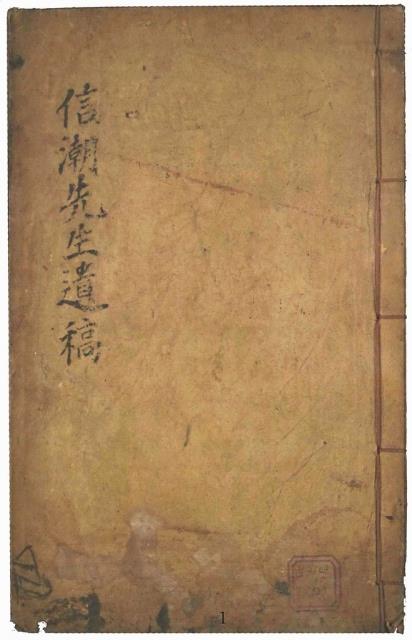 信潮先生遺稿
1